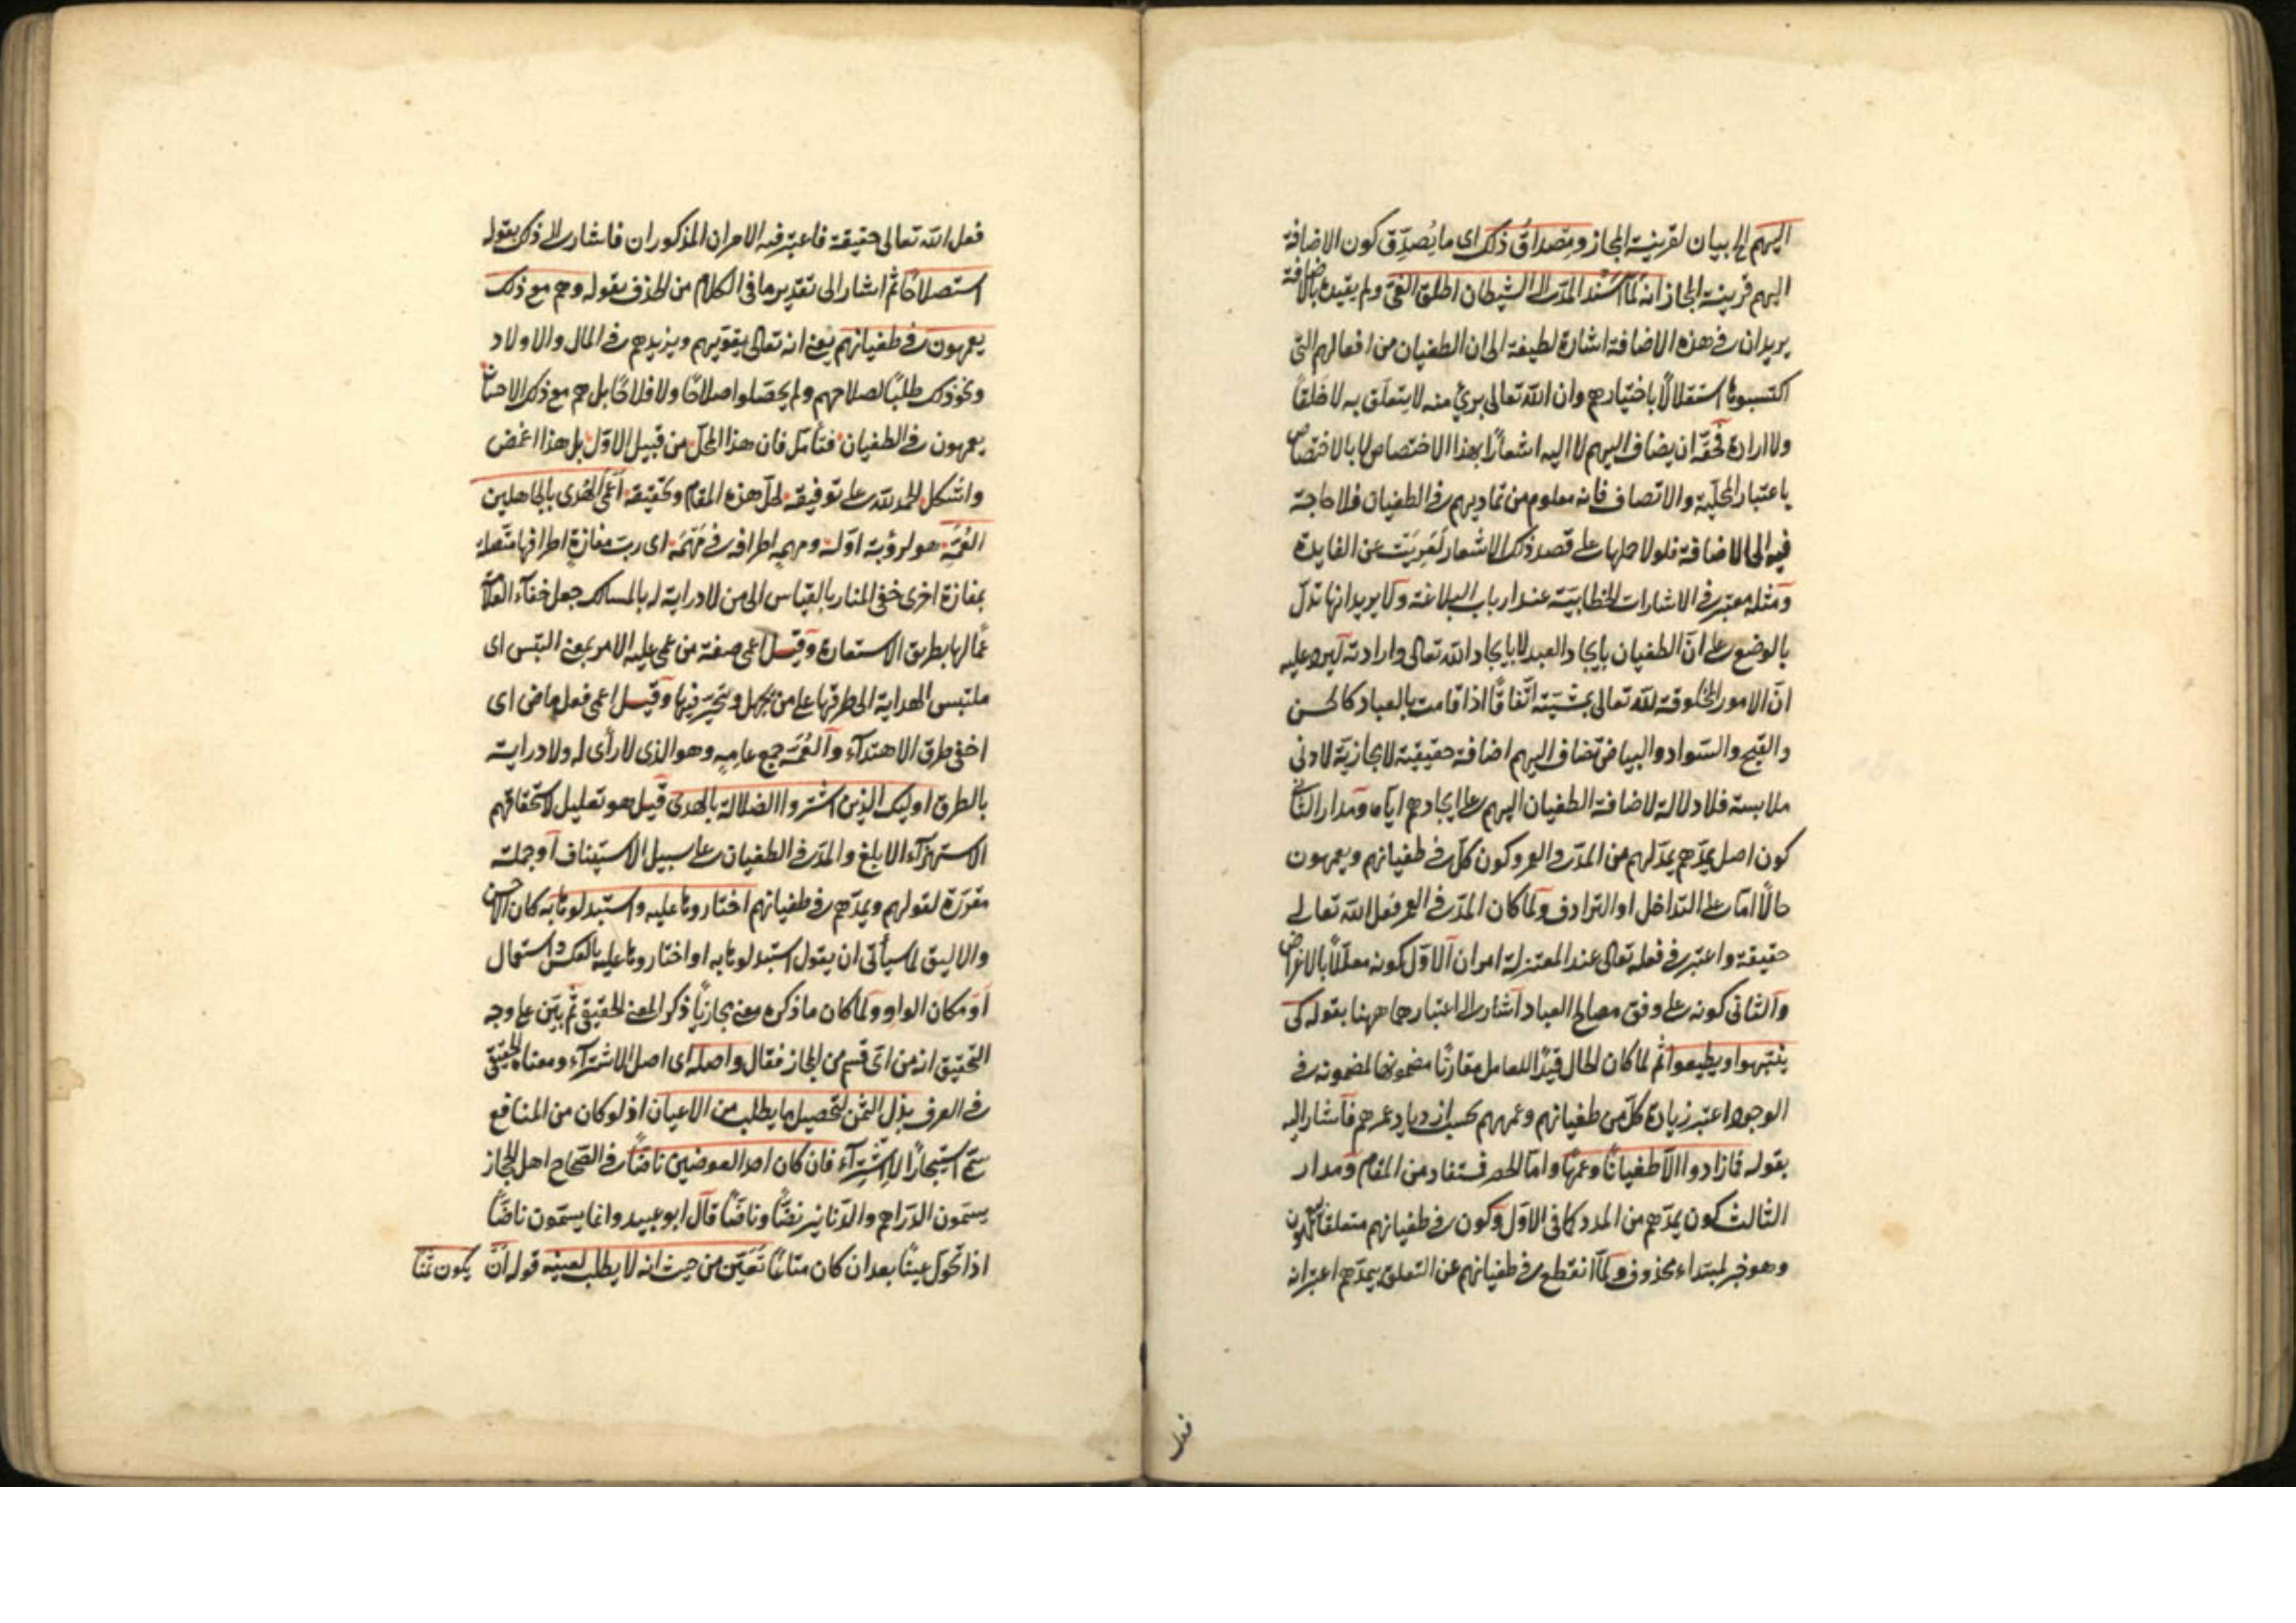 اليهم الى بيان لقرينة المجاز ومصداق ذلك اى ما يُصدّق كون الاضافة
اليهم قرينة المجاز انه لمّا اسند المدّ الى الشيطان اطلق الغىّ ولم يقيده بالاضافة
يريد ان فى هذه الاضافة اشارة لطيفة الى ان الطغيان من افعالهم التى
اكتسبوها استقلالًا باختيارهم وان الله تعالى برئ منه لا يتعلق به لا خلقًا
ولا ارادة فحقّه ان يضاف اليهم لا اليه اشعارًا بهذا الاختصاص لا بالاختصاص
باعتبار المحلّية والاتصاف فانه معلوم من تماديهم فى الطغيان فلا حاجة
فيه الى الاضافة فلولا حملها على قصد ذلك الاشعار لعَرِيَت عن الفايدة
ومثله معتبر فى الاشارات الخطابية عند ارباب البلاغة ولا يريد انها تدلّ
بالوضع على انّ الطغيان بايجاد العبد لا بايجاد الله تعالى وارادته ليرد عليه
انّ الامور المخلوقة لله تعالى بمشيّته اتفاقًا اذا قامت بالعباد كالحسن
والقبح والسّواد والبياض تضاف اليهم اضافة حقيقية لا مجازيّة لادنى
ملابسة فلا دلالة لاضافة الطغيان اليهم على ايجادهم ايّاه ومدار الثانى
كون اصل يمدّهم يمدّ لهم من المدّ فى العمر وكون كلّ فى طغيانهم ويعمهون
حالًا امّا على التداخل او الترادف ولمّا كان المدّ فى العمر فعل الله تعالى
حقيقة واعتبر فى فعله تعالى عند المعتزلة امران الاوّل كونه معلّلًا بالاغراض
والثانى كونه على وفق مصالح العباد اشار الى اعتبارهما ههنا بقوله كى
ينتبهوا ويطيعوا ثم لما كان الحال قيدًا للعامل مقارنًا مضمونها لمضمونه فى
الوجود اعتبر زيادة كلّ من طغيانهم وعمههم بحسب ازدياد عمرهم فاشار اليه
بقوله فما زادوا الّا طغيانًا وعمهًا وامّا الحصر فمستفاد من المقام ومدار
الثالث كون يمدّهم من المدد كما فى الاوّل وكون فى طغيانهم متعلقًا بيعمهون
وهو خبر لمبتداء محذوف ولمّا انقطع فى طغيانهم عن التعلق بيمدّهم اعتبر انه
فعل
فعل الله تعالى حقيقة فاعتبر فيه الامران المذكوران فاشار الى ذلك بقوله
استصلاحًا ثم اشار الى تقدير ما فى الكلام من الحذف بقوله وهم مع ذلك
يعمهون فى طغيانهم يعنى انه تعالى يقوّيهم ويزيدهم فى المال والاولاد
ونحو ذلك طلبًا لصلاحهم ولم يحصّلوا صلاحًا ولا فلاحًا بل هم مع ذلك الاحسان
يعمهون فى الطغيان فتأمل فان هذا المحلّ من قبيل الاوّل بل هذا اغمض
واشكل الحمد لله على توفيقه لحلّ هذه المقام وتحقيقه اعمى الهُدى بالجاهلين
العُمّه هو لرؤبة اوّله ومهمهٍ اطرافه فى مَهْمَه اى ربّ مفازة اطرافها متّصلة
بمفازة اخرى خفىّ المنار بالقياس الى من لا دراية له بالمسالك جعل خفآء العلامة
عمًا لها بطريق الاستعارة وقيل اعمى صفة من عمى عليه الامر بمعنى التبس اى
ملتبس الهداية الى طرقها على من يجهل ويتحيّر فيها وقيل اعمى فعل ماض اى
اخفى طرق الاهتدآء والعُمَّه جمع عامِه وهو الذى لا رأى له ولا دراية
بالطرق اوليك الذين اشتروا الضلالة بالهدى قيل هو تعليل لاستحقاقهم
الاستهزآء الابلغ والمدّ فى الطغيان على سبيل الاستيناف او جملة
مقرّرة لقولهم ويمدّهم فى طغيانهم اختاروها عليه واستبدلوها به كان الاحسن
والاليق لما سيأتى ان يقول استبدلوها به او اختاروها عليه بالعكس واستعمال
او مكان الواو ولمّا كان ما ذكره معنى مجازيًا ذكر المعنى الحقيقى ثم بيّن على وجه
التحقيق انه من اىّ قسم من المجاز فقال واصله اى اصل الاشترآء ومعناه الحقيقى
فى العرف بذل الثمن لتحصيل ما يطلب من الاعيان اذ لو كان من المنافع
سمّى استيجارًا لا اشترآء فان كان احد العوضين ناضًّا فى الصّحاح اهل الحجاز
يسمّون الدّراهم والدّنانير نضًّا وناضًّا قال ابو عبيد وانما يسمّون ناضًّا
اذا تحوّل عينًا بعد ان كان متاعًا تعيّن من حيث انه لا يطلب لعينه قوله ان يكون ثمنًا